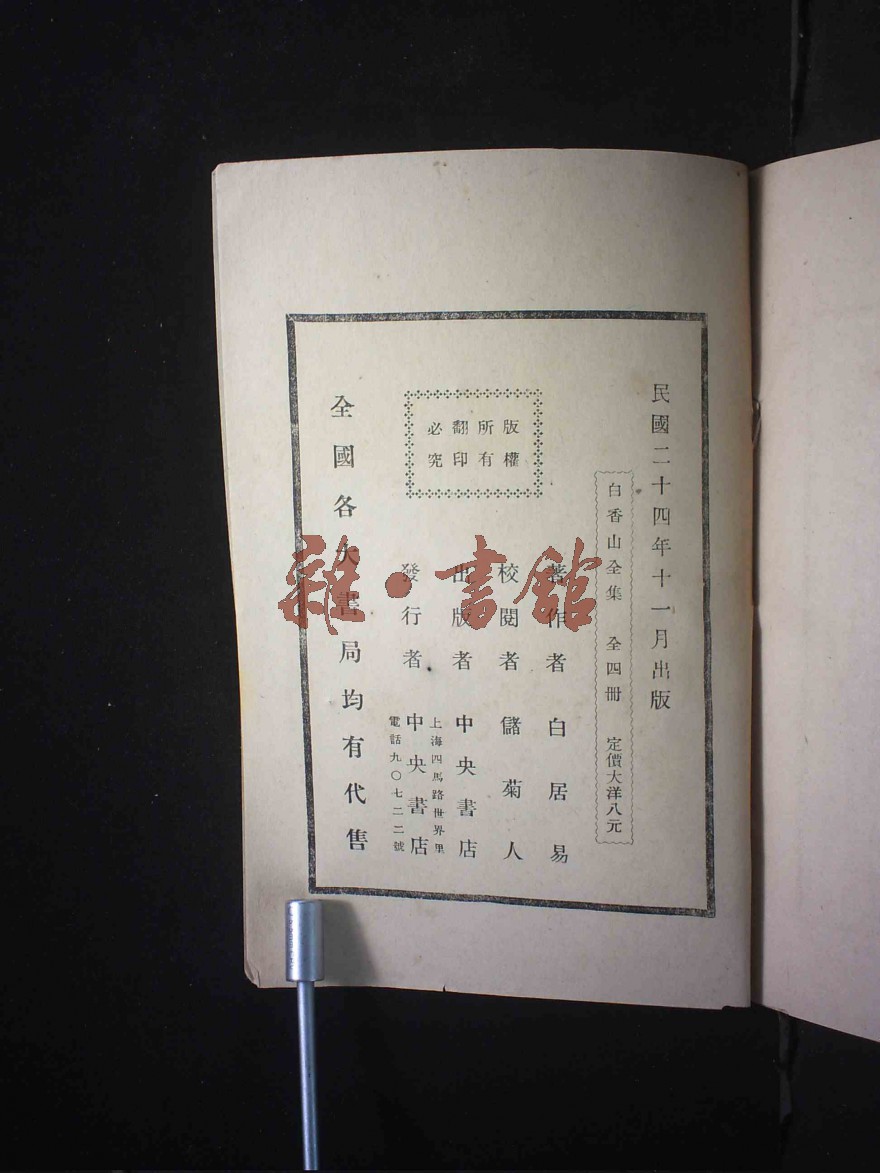 民國二十四年十一月出版
白香山全集 全四冊 定價大洋八元
著作者 白居易
校閱者 儲菊人
出版者 中央書店
上海四馬路世界里
發行者 中央書店
電話九〇七二二號
版權
所有
翻印
必究
全國各大書局均有代售
雜·書館